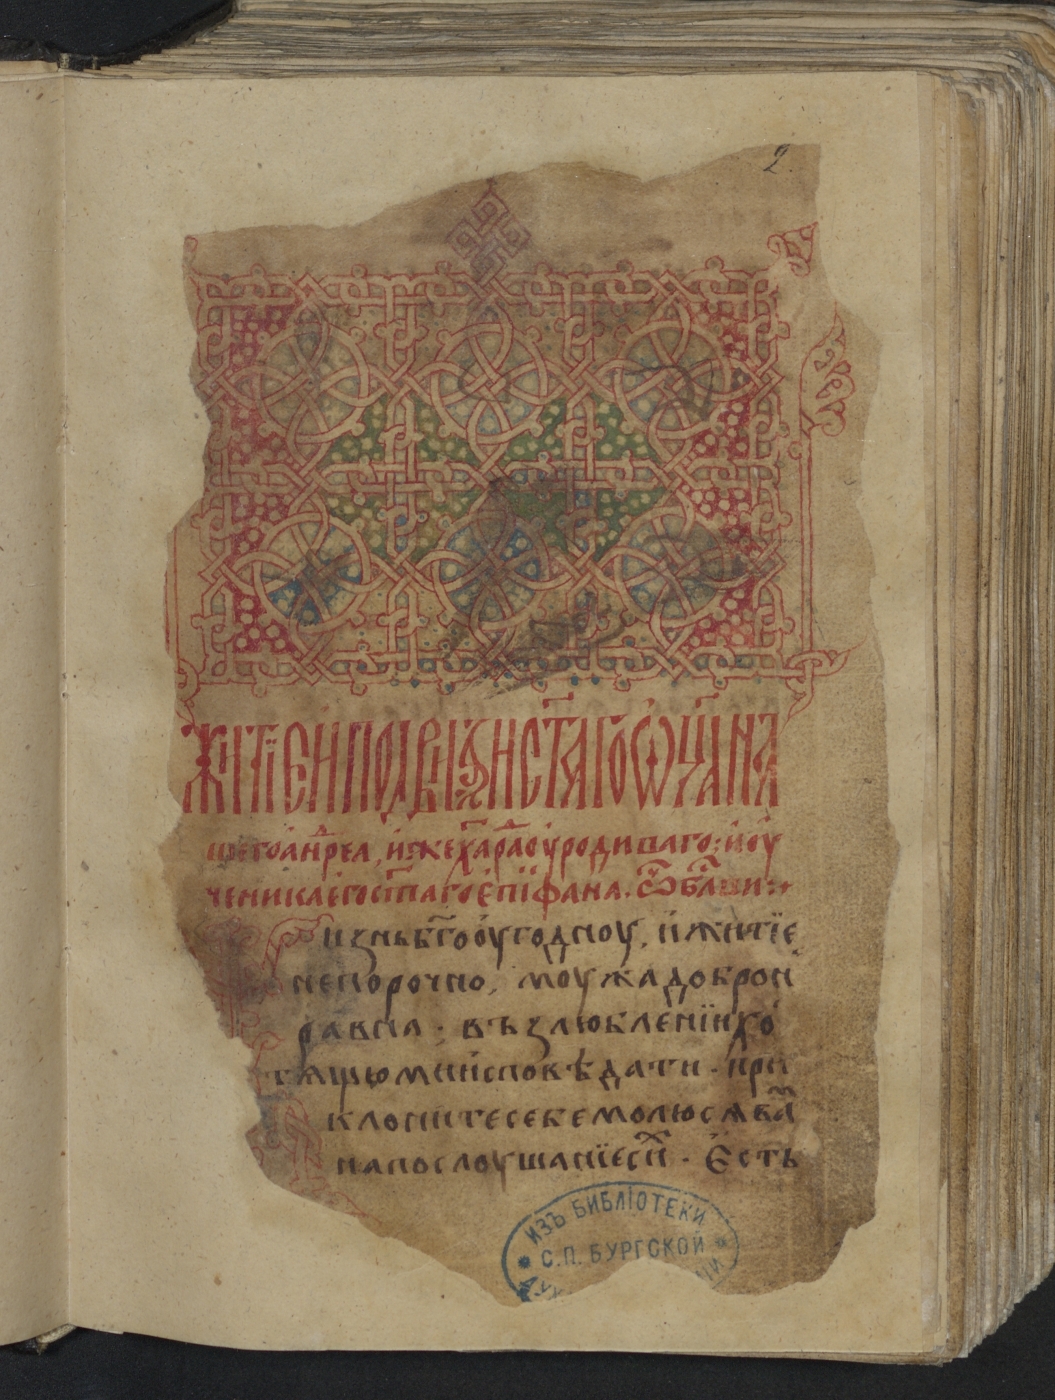 2.
ЖИТЇЕ И ПОДВИЗИ СТА҃ГО ѠЦ҃А НА
шего а҆нъдреа, и҆же хаⷭ҇ раⷣ оуродиваго: и҆ оу
ченика е҆го ст҃паго е҆пїфана. ѿ бл҃ви
изнь б҃гоу҆годноу, и҆ житїе
непорочно, моужа доброн
равна, възлюбленїи хо
тящю ми и҆сповѣдати. при
клоните себе молюся ваⷨ
на послоушанїе сиⷯ. Е҆сть
ИЗЪ БИБЛІОТЕКИ
С.П. БУРГСКОЙ